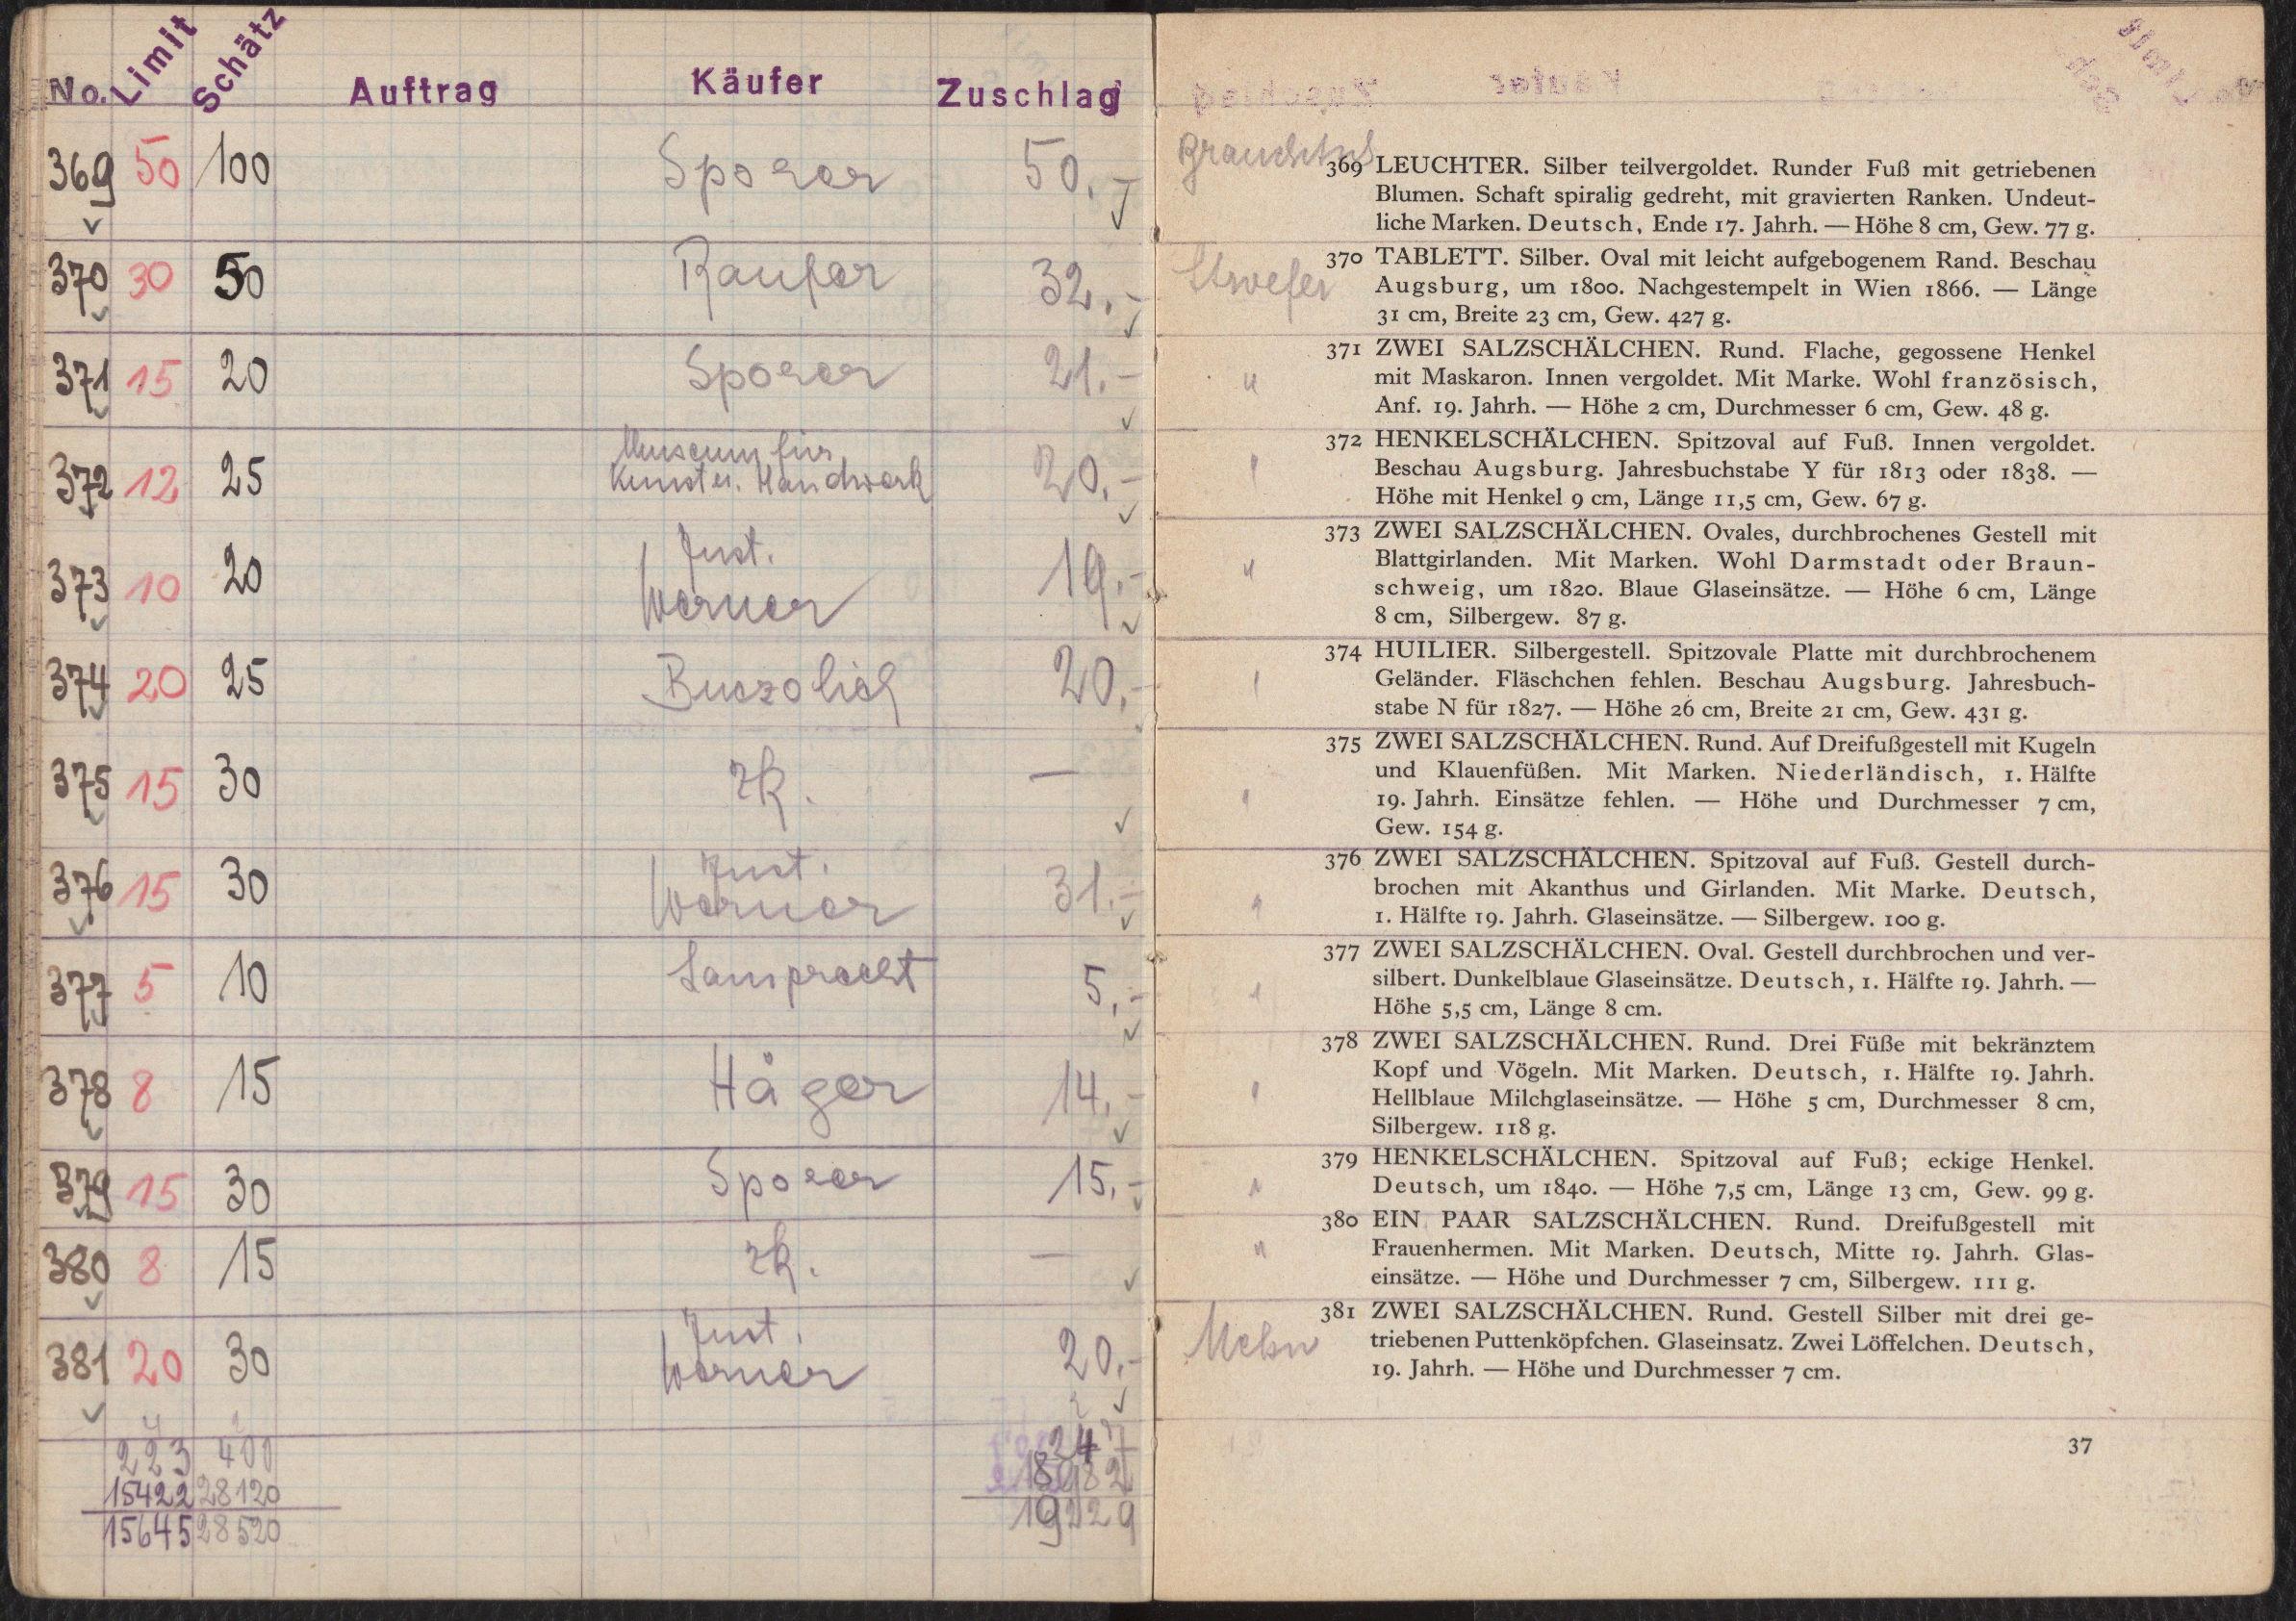 No. Limit Schätz Auftrag Käufer Zuschlag
369 50 100 Sporer 50.-
370 30 50 32.-
371 15 20 Sporer 21.-
372 12 25 Museum für
Kunst u. Handwerk 20.-
373 10 20 Just.
Werner 19.-
374 20 25 20.-
375 15 30 rk. —
376 15 30 Just.
Werner 31.-
377 5 10 Lamprecht 5.-
378 8 15 Häger 14.-
379 15 30 Sporer 15.-
380 8 15 rk. —
381 20 30 Just.
Werner 20.-
223 400 247
15422 28120 18982
15645 28520 19229
369 LEUCHTER. Silber teilvergoldet. Runder Fuß mit getriebenen
Blumen. Schaft spiralig gedreht, mit gravierten Ranken. Undeut-
liche Marken. Deutsch, Ende 17. Jahrh. — Höhe 8 cm, Gew. 77 g.
370 TABLETT. Silber. Oval mit leicht aufgebogenem Rand. Beschau
Augsburg, um 1800. Nachgestempelt in Wien 1866. — Länge
31 cm, Breite 23 cm, Gew. 427 g.
371 ZWEI SALZSCHÄLCHEN. Rund. Flache, gegossene Henkel
" mit Maskaron. Innen vergoldet. Mit Marke. Wohl französisch,
Anf. 19. Jahrh. — Höhe 2 cm, Durchmesser 6 cm, Gew. 48 g.
372 HENKELSCHÄLCHEN. Spitzoval auf Fuß. Innen vergoldet.
Beschau Augsburg. Jahresbuchstabe Y für 1813 oder 1838. —
Höhe mit Henkel 9 cm, Länge 11,5 cm, Gew. 67 g.
373 ZWEI SALZSCHÄLCHEN. Ovales, durchbrochenes Gestell mit
" Blattgirlanden. Mit Marken. Wohl Darmstadt oder Braun-
schweig, um 1820. Blaue Glaseinsätze. — Höhe 6 cm, Länge
8 cm, Silbergew. 87 g.
374 HUILIER. Silbergestell. Spitzovale Platte mit durchbrochenem
Geländer. Fläschchen fehlen. Beschau Augsburg. Jahresbuch-
stabe N für 1827. — Höhe 26 cm, Breite 21 cm, Gew. 431 g.
375 ZWEI SALZSCHÄLCHEN. Rund. Auf Dreifußgestell mit Kugeln
und Klauenfüßen. Mit Marken. Niederländisch, 1. Hälfte
19. Jahrh. Einsätze fehlen. — Höhe und Durchmesser 7 cm,
Gew. 154 g.
376 ZWEI SALZSCHÄLCHEN. Spitzoval auf Fuß. Gestell durch-
brochen mit Akanthus und Girlanden. Mit Marke. Deutsch,
1. Hälfte 19. Jahrh. Glaseinsätze. — Silbergew. 100 g.
377 ZWEI SALZSCHÄLCHEN. Oval. Gestell durchbrochen und ver-
silbert. Dunkelblaue Glaseinsätze. Deutsch, 1. Hälfte 19. Jahrh. —
Höhe 5,5 cm, Länge 8 cm.
378 ZWEI SALZSCHÄLCHEN. Rund. Drei Füße mit bekränztem
Kopf und Vögeln. Mit Marken. Deutsch, 1. Hälfte 19. Jahrh.
Hellblaue Milchglaseinsätze. — Höhe 5 cm, Durchmesser 8 cm,
Silbergew. 118 g.
379 HENKELSCHÄLCHEN. Spitzoval auf Fuß; eckige Henkel.
Deutsch, um 1840. — Höhe 7,5 cm, Länge 13 cm, Gew. 99 g.
380 EIN PAAR SALZSCHÄLCHEN. Rund. Dreifußgestell mit
" Frauenhermen. Mit Marken. Deutsch, Mitte 19. Jahrh. Glas-
einsätze. — Höhe und Durchmesser 7 cm, Silbergew. 111 g.
381 ZWEI SALZSCHÄLCHEN. Rund. Gestell Silber mit drei ge-
triebenen Puttenköpfchen. Glaseinsatz. Zwei Löffelchen. Deutsch,
19. Jahrh. — Höhe und Durchmesser 7 cm.
37